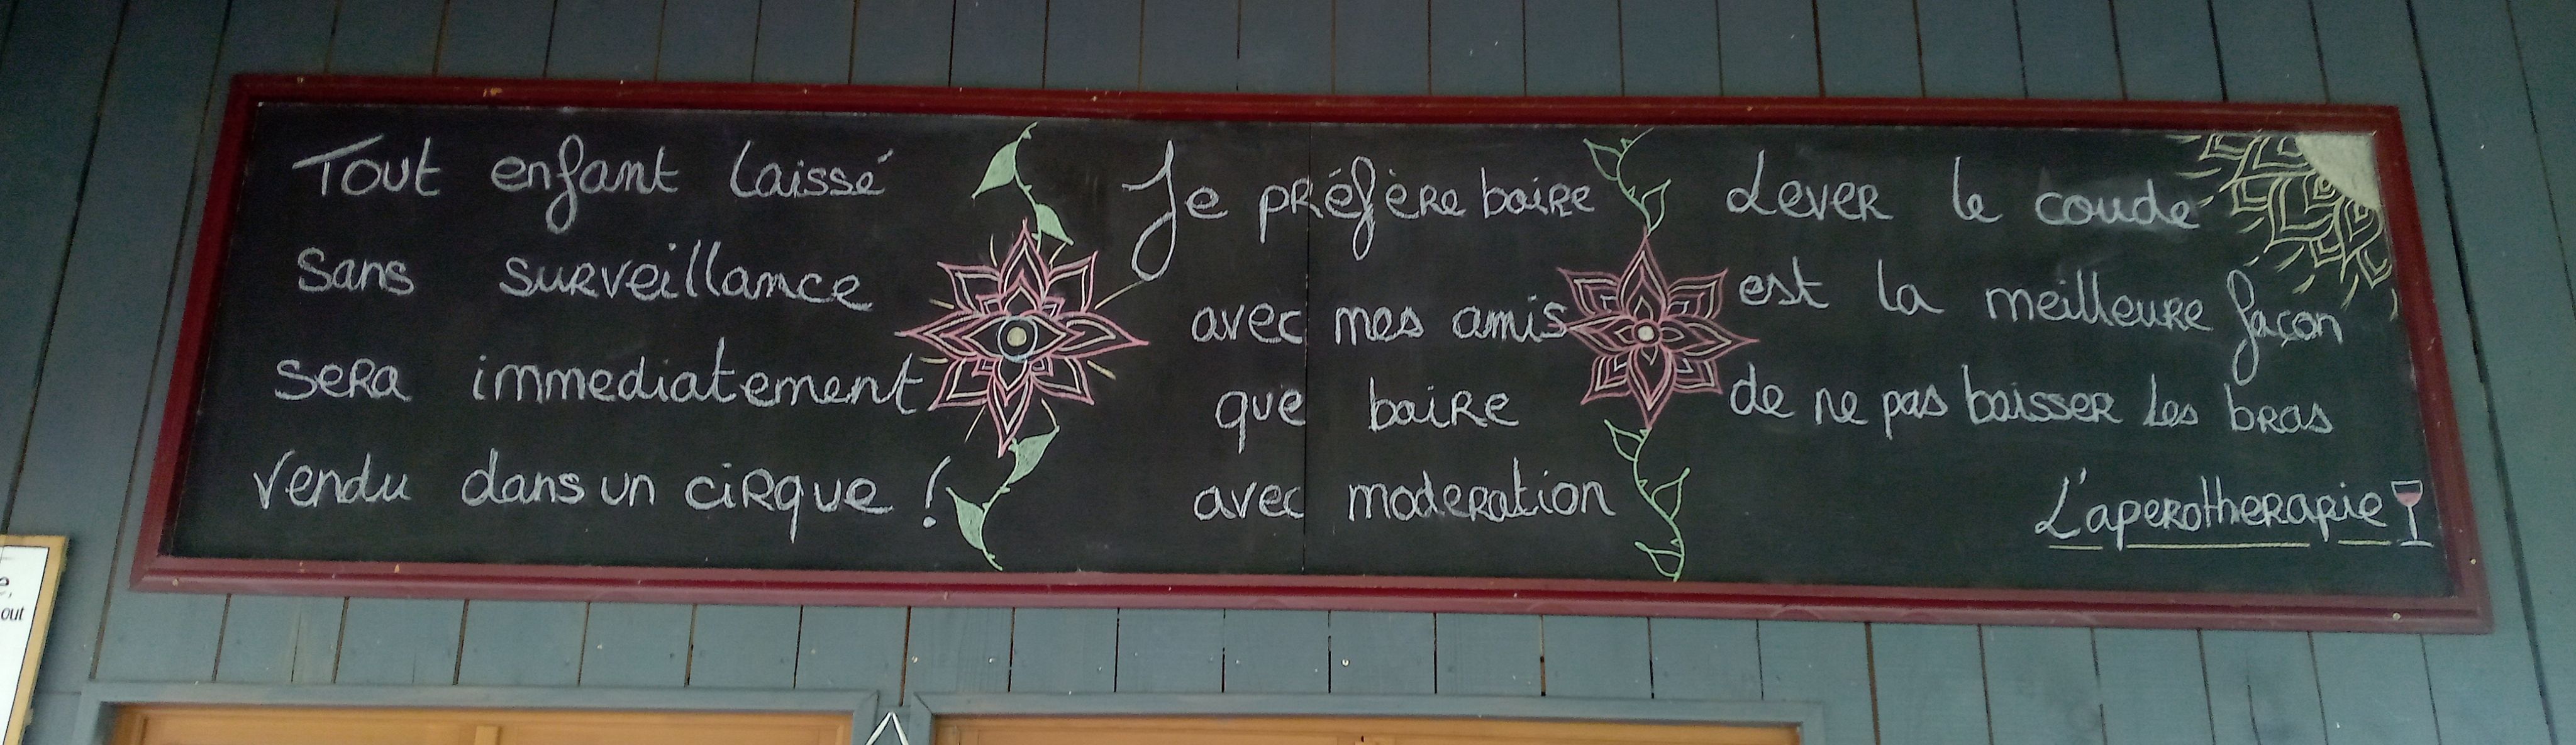 Tout enfant laissé
sans surveillance
sera immediatement
vendu dans un cirque !
Je préfère boire
avec mes amis
que boire
avec moderation
Lever le coude
est la meilleure façon
de ne pas baisser les bras
L'aperotherapie
e,
out